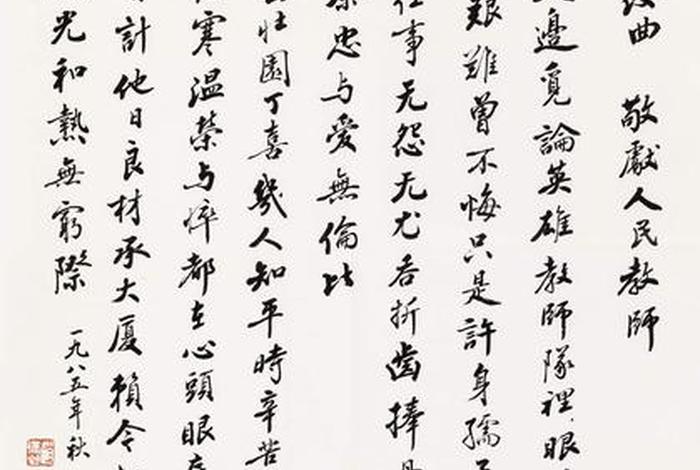 曲 敬獻人民教師
邊覓論英雄教師隊裡眼
艱難曾不悔只是許身孺
事无怨无尤吞折齒捧
忠与愛無倫比
壯園丁喜幾人知平時辛苦
寒溫榮与悴都在心頭眼
計他日良材承大廈賴今
光和熱無窮際
一九八五年秋